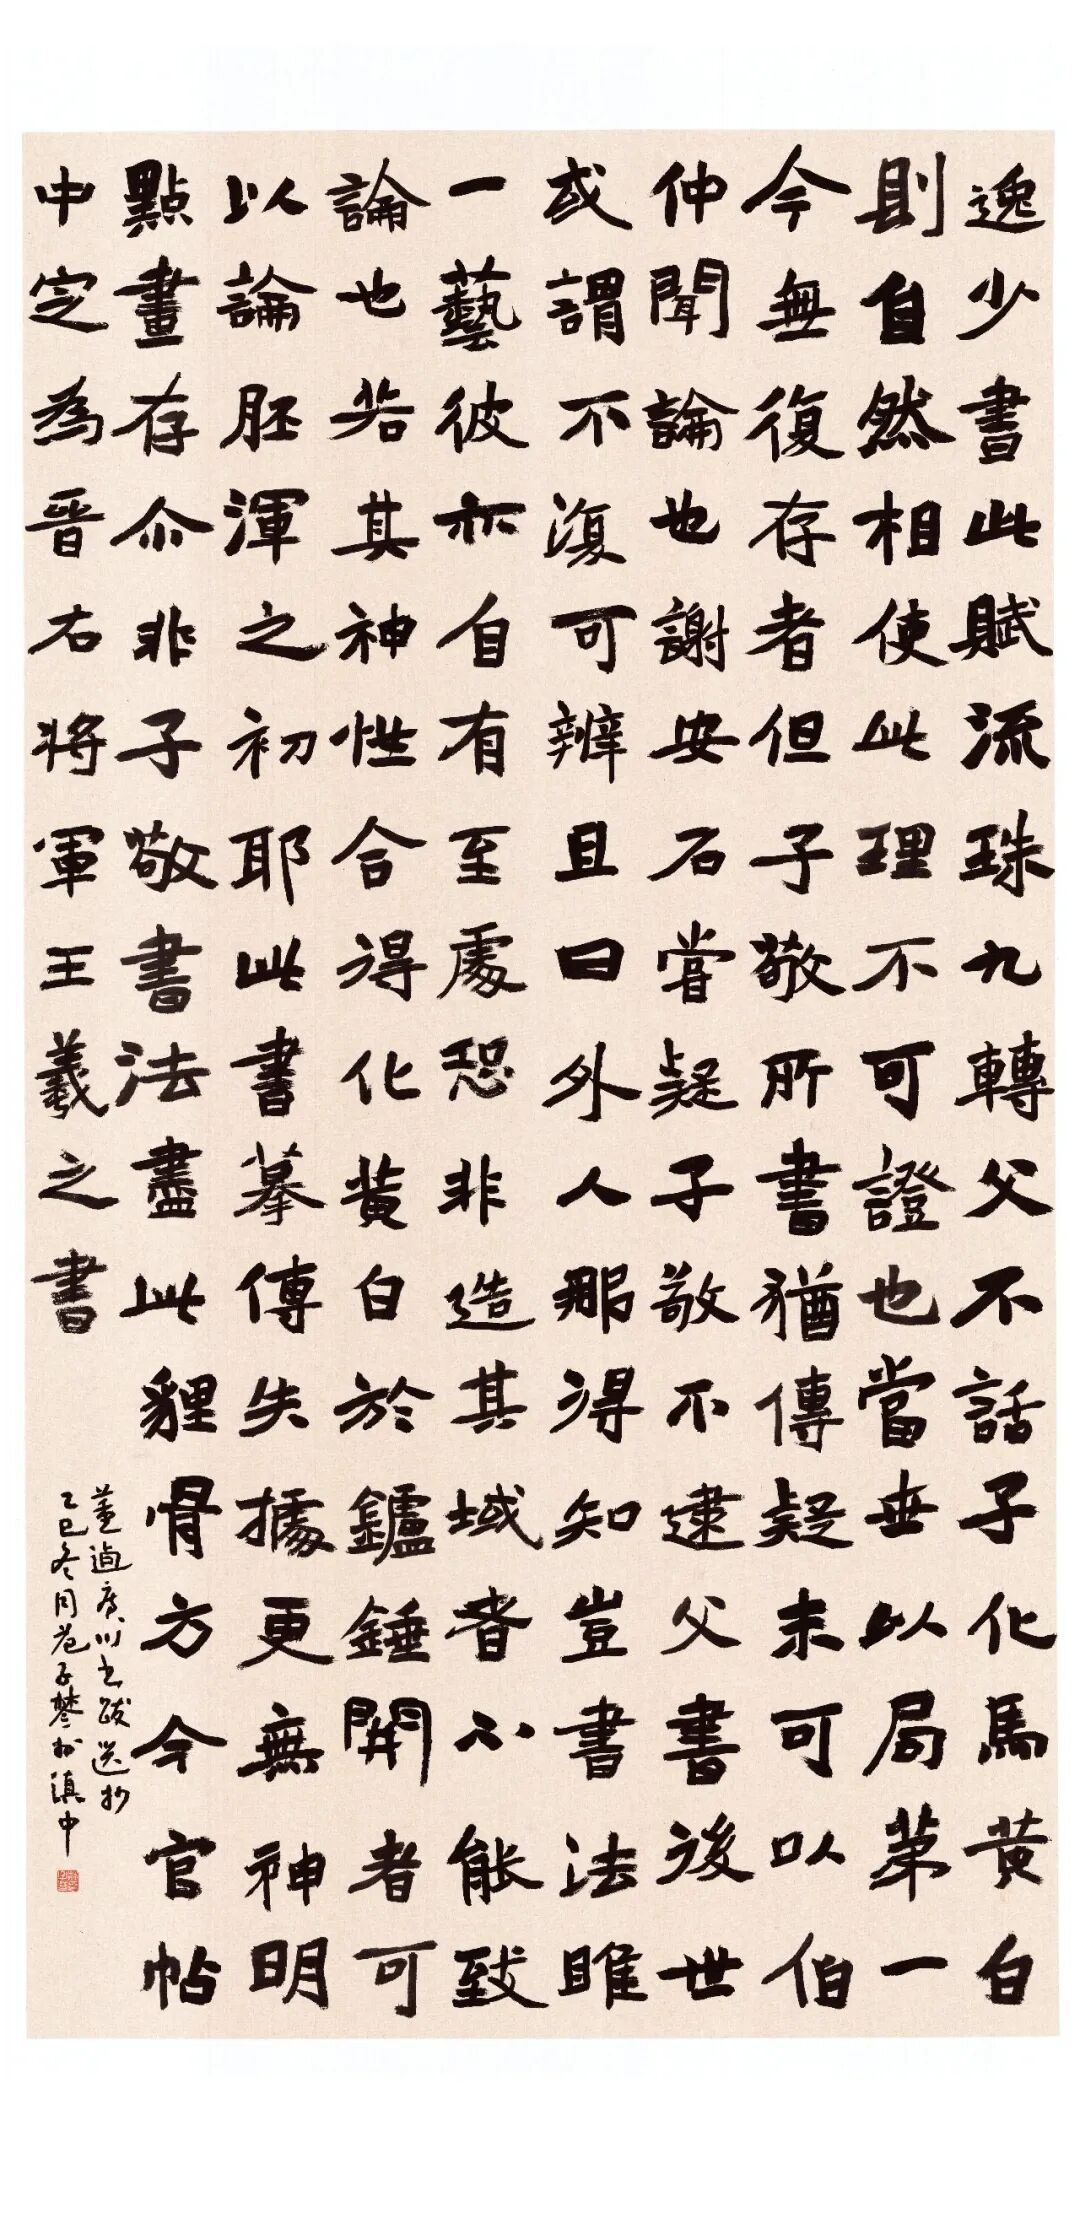 逸少書此賦流珠九轉父不話子化馬黄白
則自然相使此理不可證也當世以局苐一
今無復存者但子敬所書猶傳疑未可以伯
仲聞論也謝安石嘗疑子敬不逮父書後世
或謂不復可辨且曰外人那得知豈書法雖
一藝彼亦自有至處恐非造其域者不能致
論也若其神性合得化黄白於鑪錘開者可
以論胚渾之初耶此書摹傳失據更無神明
點畫存尒非子敬書法盡此貍骨方今官帖
中定為晉右將軍王羲之書
董逌廣川書跋選抄
乙巳冬月范子楚於滇中